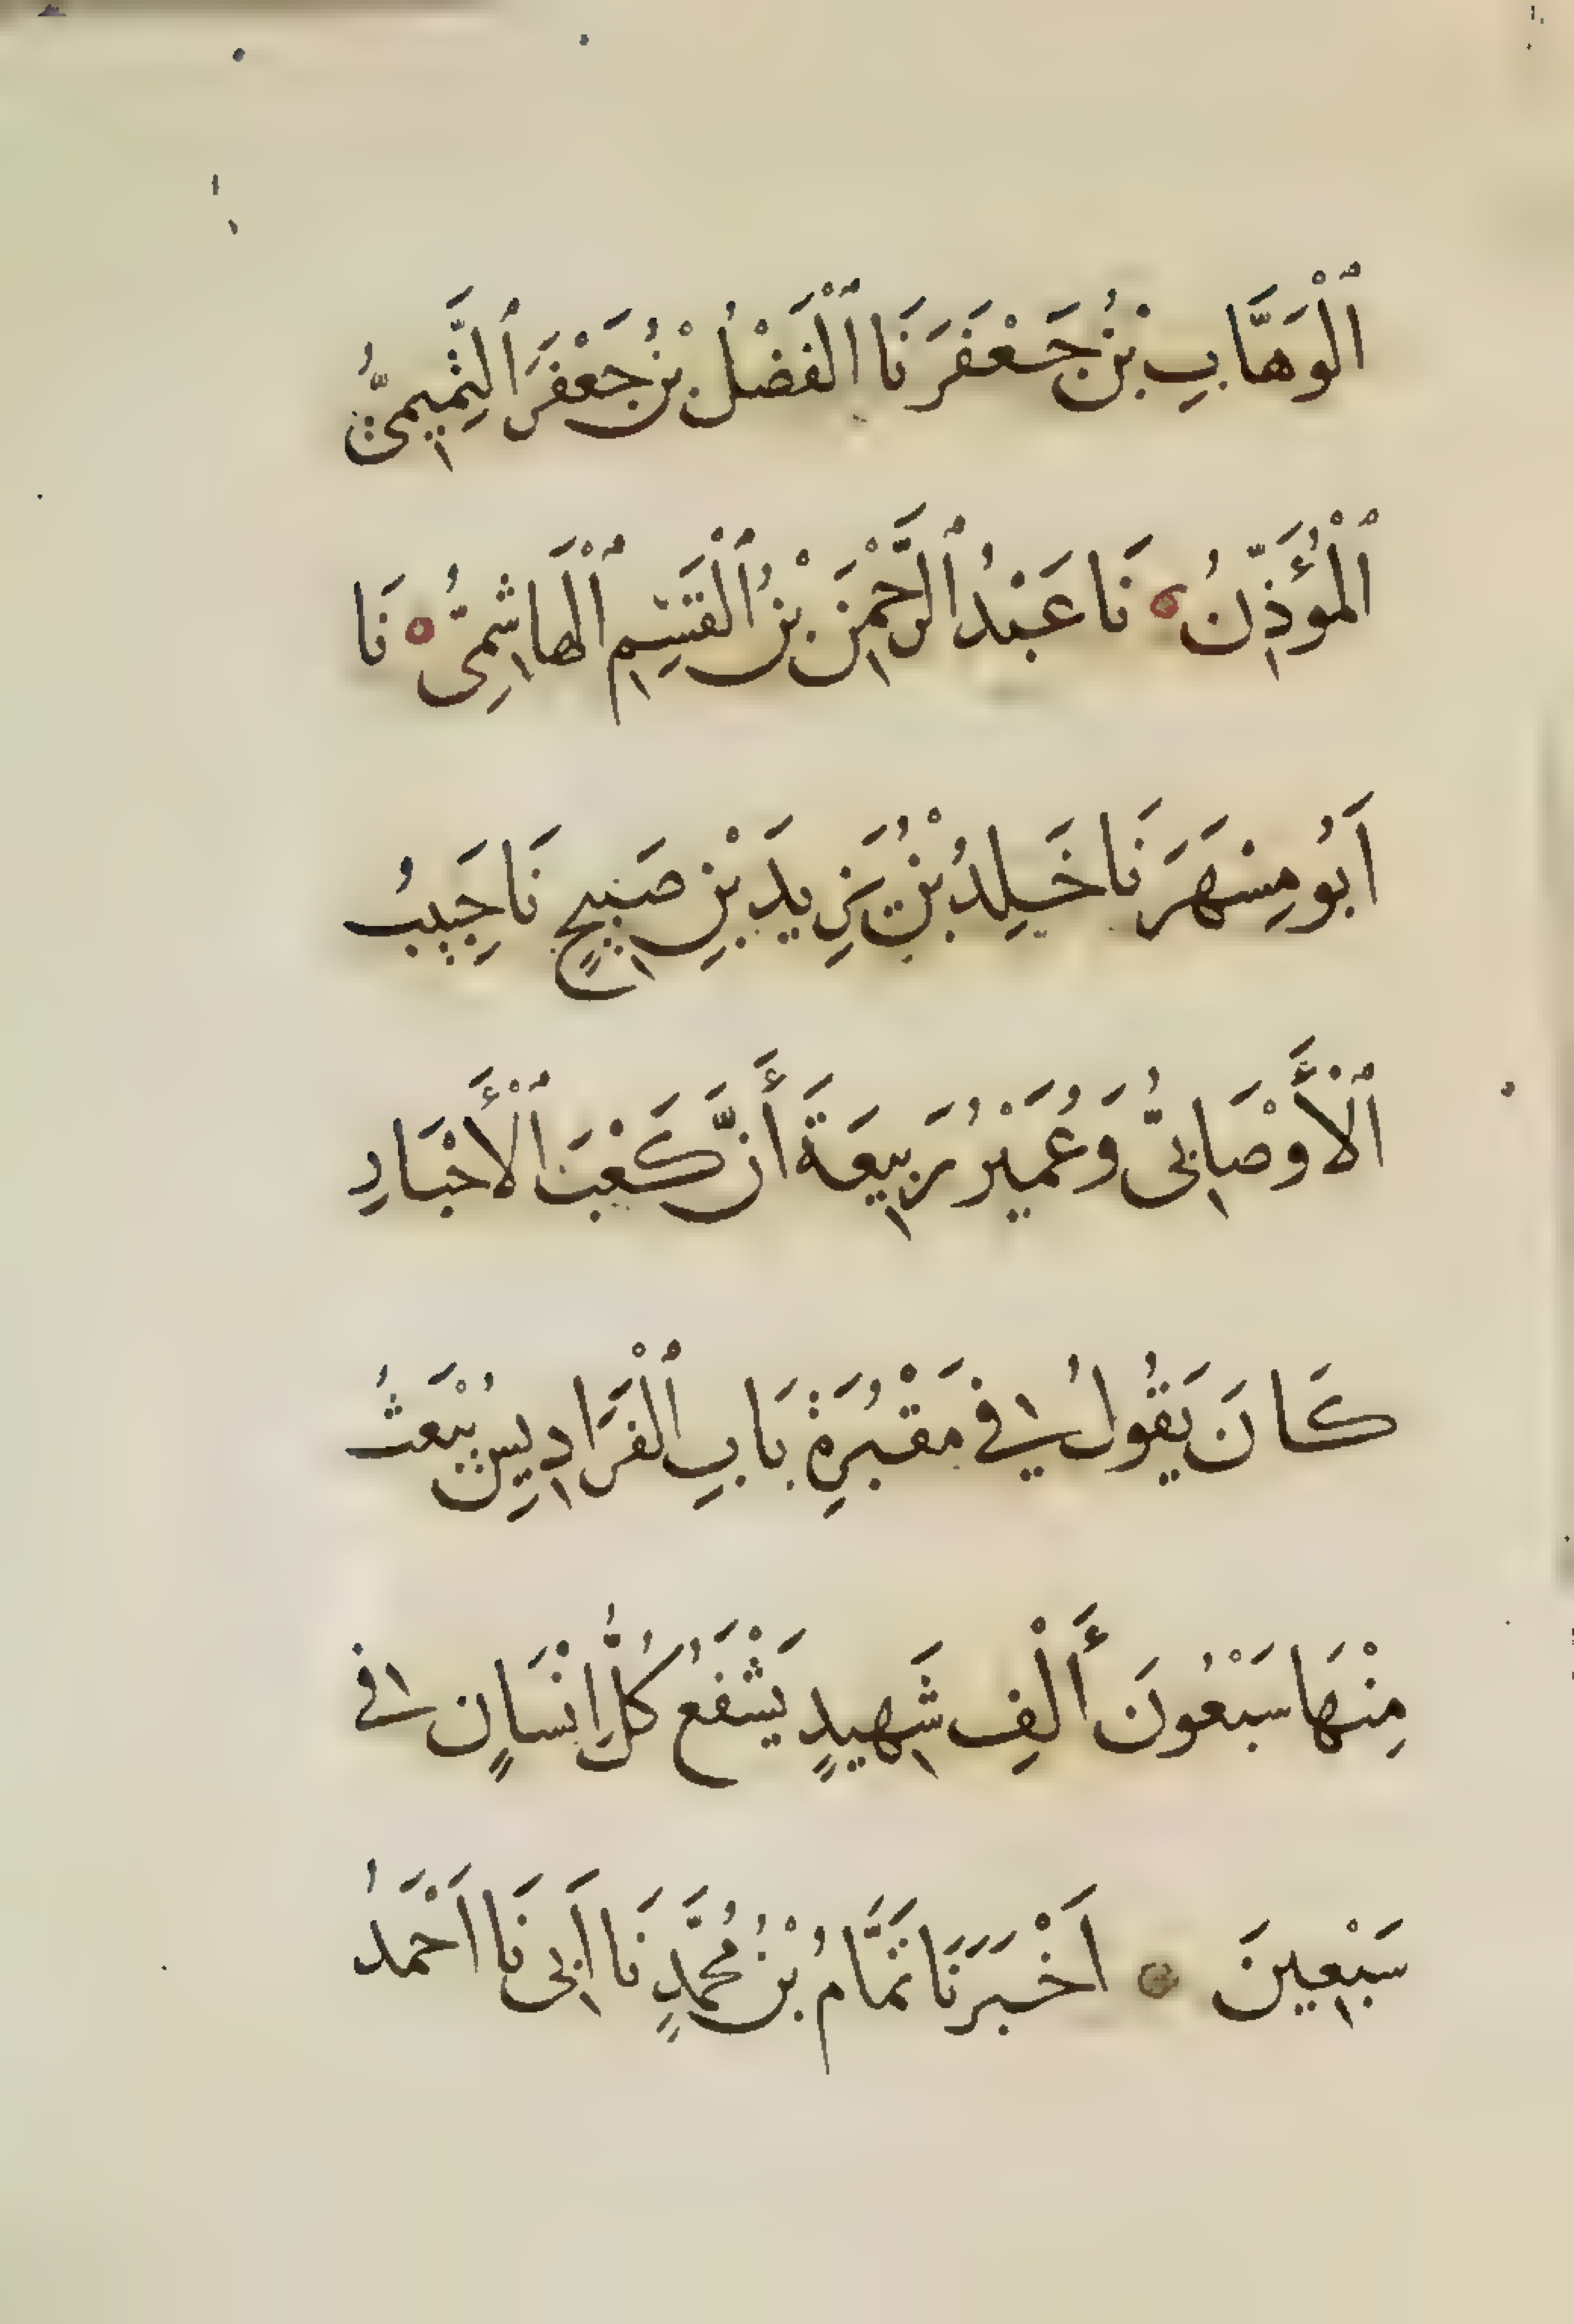 ٱلْوَهَّابِ بْنُ جَعْفَرَ نَا ٱلْفَضْلُ بْنُ جَعْفَرَ ٱلتَّمِيمِىُّ
ٱلْمُؤَذِّنُ ه نَا عَبْدُ ٱلرَّحْمٰنِ بْنُ ٱلْقَسِمِ ٱلْهَاشِمِىُّ ه نَا
اَبُو مِسْهَرَ نَا خَلِدُ بْنُ يَزِيدَ بْنِ صَبِيحٍ نَا حَبِيبُ
ٱلْأَوْصَابِىُّ وَعُمَيْرُ رَبِيعَةَ أَنَّ كَعْبَ ٱلْأَحْبَارِ
كَانَ يَقُولُ فِى مَقْبُرَةِ بَابِ ٱلْفَرَادِيسِ يُبْعَثُ
مِنْهَا سَبْعُونَ أَلْفِ شَهِيدٍ يَشْفَعُ كُلُّ اِنْسَانٍ فِى
سَبْعِينَ ۞ اَخْبَرَنَا تَمَّامُ بْنُ مُحَمَّدٍ نَا اَبِى نَا اَحْمَدُ